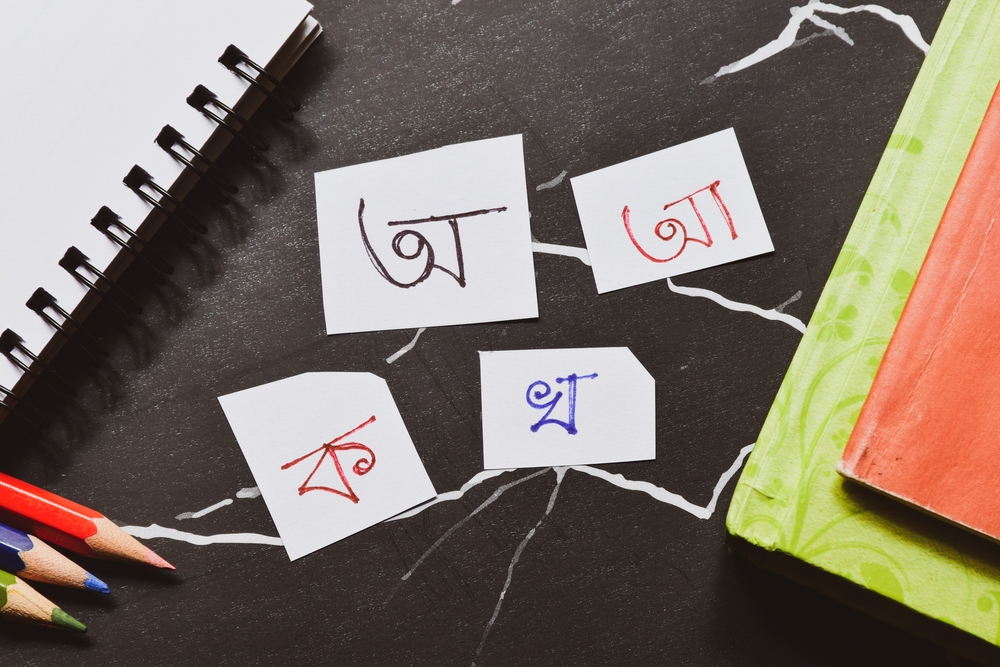 অ
আ
ক
খ